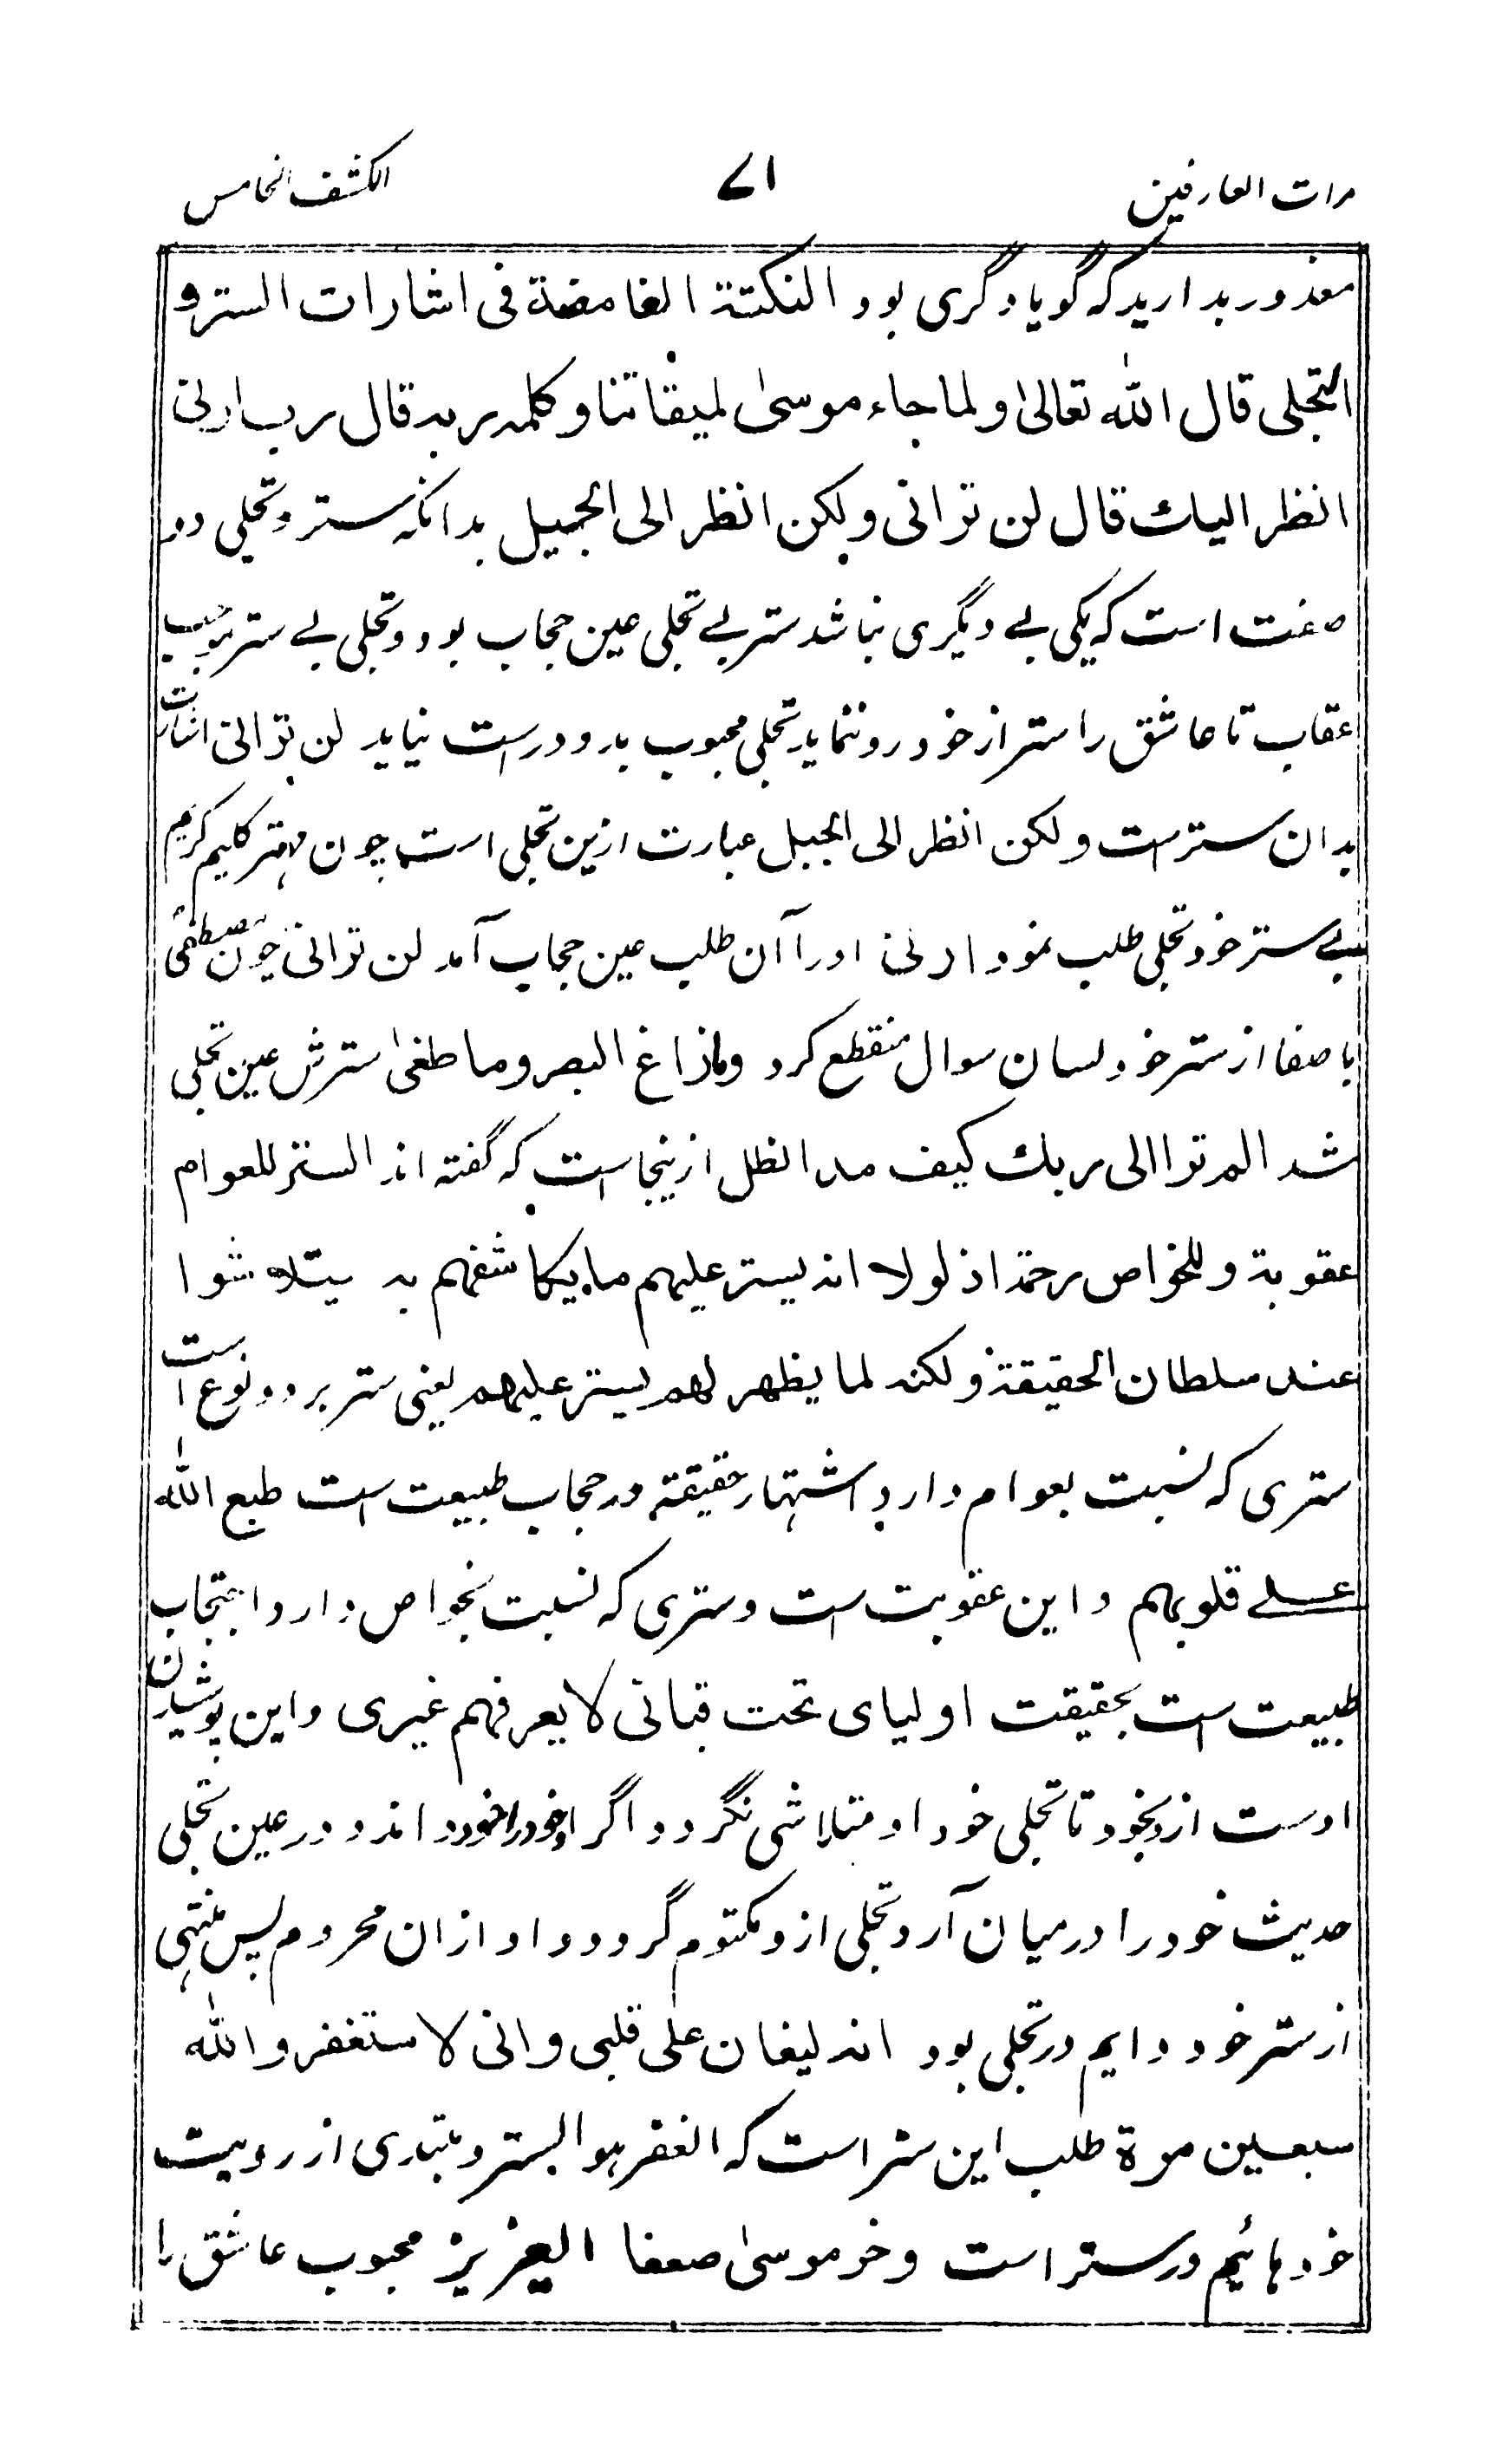 مرات العارفین ۷۱ الکشف الخامس
معذور بدارید که گویا دگری بود النکتة الغامضة فی اشارات الستر و
التجلی قال الله تعالیٰ ولما جاء موسیٰ لمیقاتنا وکلمه ربه قال رب ارنی
انظر الیك قال لن ترانی ولکن انظر الی الجبیل بدانکه ستر و تجلی دو
صفت است که یکی بے دیگری نباشد ستر بے تجلی عین حجاب بود و تجلی بے ستر موجب
عقاب تا عاشق را ستر از خود رو ننماید تجلی محبوب بدو درست نیاید لن ترانی اشارت
بدان سترست ولکن انظر الی الجبل عبارت ازین تجلی است چون مهتر کلیم کریم
بے ستر خود تجلی طلب نمود ارنی اورا آن طلب عین حجاب آمد لن ترانی چون مصطفی
با صفا از ستر خود لسان سوال منقطع کرد ومازاغ البصر وما طغیٰ سترش عین تجلی
شد الم ترا الی ربك کیف مد الظل ازینجاست که گفته اند الستر للعوام
عقوبة وللخواص رحمة اذ لولا انه یستر علیهم ما یکاشفهم به یتلاشوا
عند سلطان الحقیقة ولکنه لما یظهر لهم یستر علیهم یعنی ستر بر دو نوع است
ستری که نسبت بعوام دارد اشتهار حقیقته در حجاب طبیعت است طبع الله
علے قلوبهم و این عقوبت ست و ستری که نسبت بخواص دارد احتجاب
طبیعت ست بحقیقت اولیای تحت قبائی لا یعرفهم غیری و این پوشیدن
اوست از و بخود تا تجلی خود او متلاشی نگردد اگر او خود را خود داند و در عین تجلی
حدیث خود را درمیان آرد تجلی ازو مکتوم گردد و او ازان محروم پس منتهی
از ستر خود دایم در تجلی بود انه لیغان علی قلبی وانی لاستغفروالله
سبعین مرة طلب این ستر است که الغفر هو الستر و مبتدی از رویت
خود هائم در ستر است وخر موسیٰ صعقا العزیز محبوب عاشق را